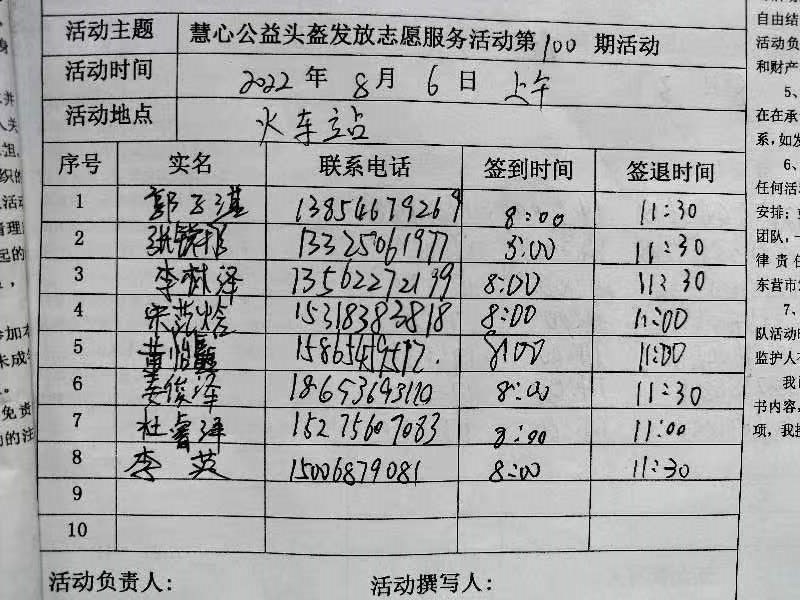 活动主题 慧心公益头盔发放志愿服务活动第100期活动
活动时间 2022年8月6日 上午
活动地点 火车站
序号 实名 联系电话 签到时间 签退时间
1 郭子淇 13854679269 8:00 11:30
2 13325061977 8:00 11:30
3 李林泽 13562272199 8:00 11:30
4 宋 15318383818 8:00 11:00
5 8:00 11:00
6 姜俊泽 18653693110 8:00 11:30
7 杜睿泽 15275607083 8:00 11:00
8 李英 15006879081 8:00 11:30
9
10
活动负责人: 活动撰写人:
自由结
活动负
和财产
5、
在在承
系,如发
6、
任何活
安排;
团队,一
律责任
东营市
7、
队活动
监护人
书内容,
项,我